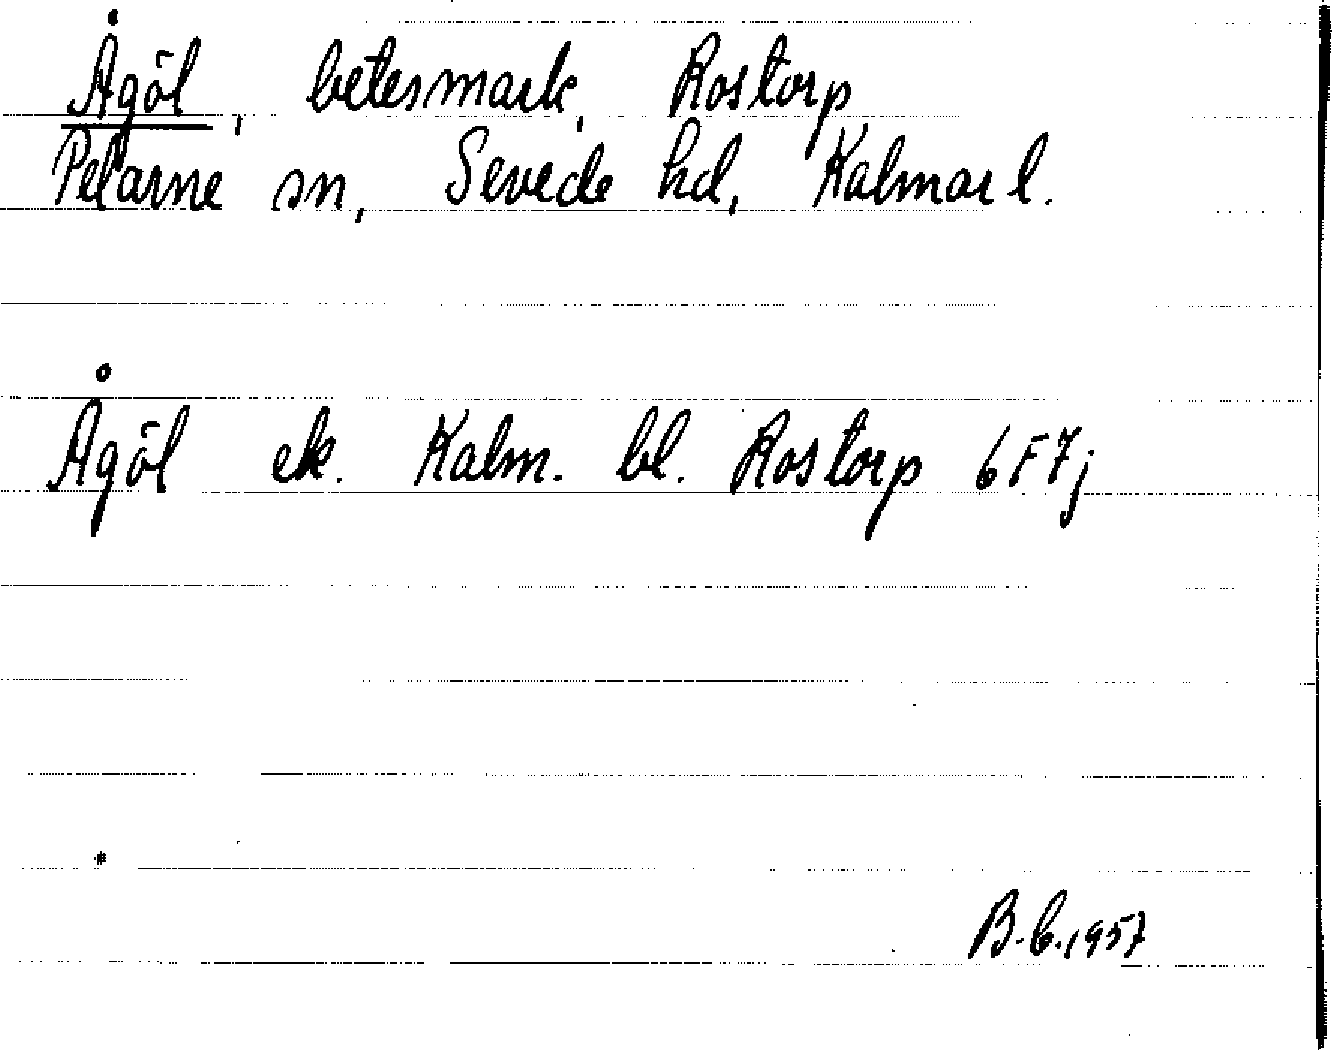 Ågöl, betesmark, Rostorp
Pelarne sn, Sevede hd, Kalmar l.
Ågöl ek. Kalm. bl. Rostorp 6F7j
B.b.1957